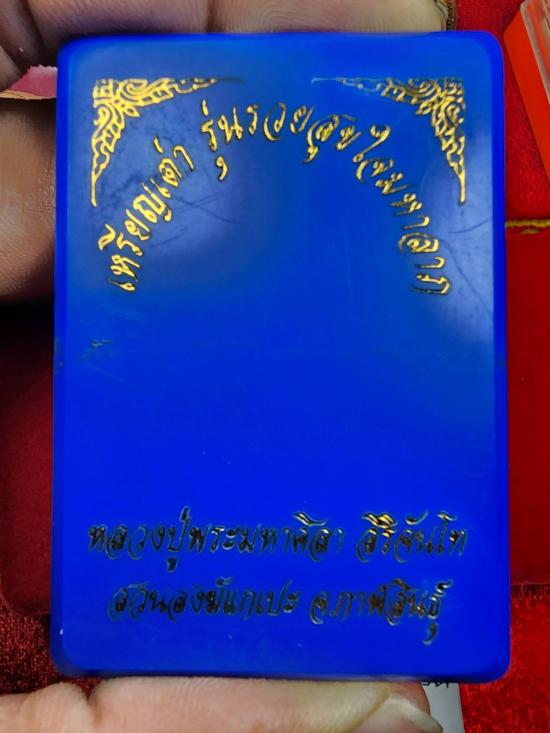 เหรียญเต่า รุ่นรวยสุขใจมหาลาภ
หลวงปู่พระมหาศิลา สิริจันโท
สวนสงฆ์แกเปะ จ.กาฬสินธุ์